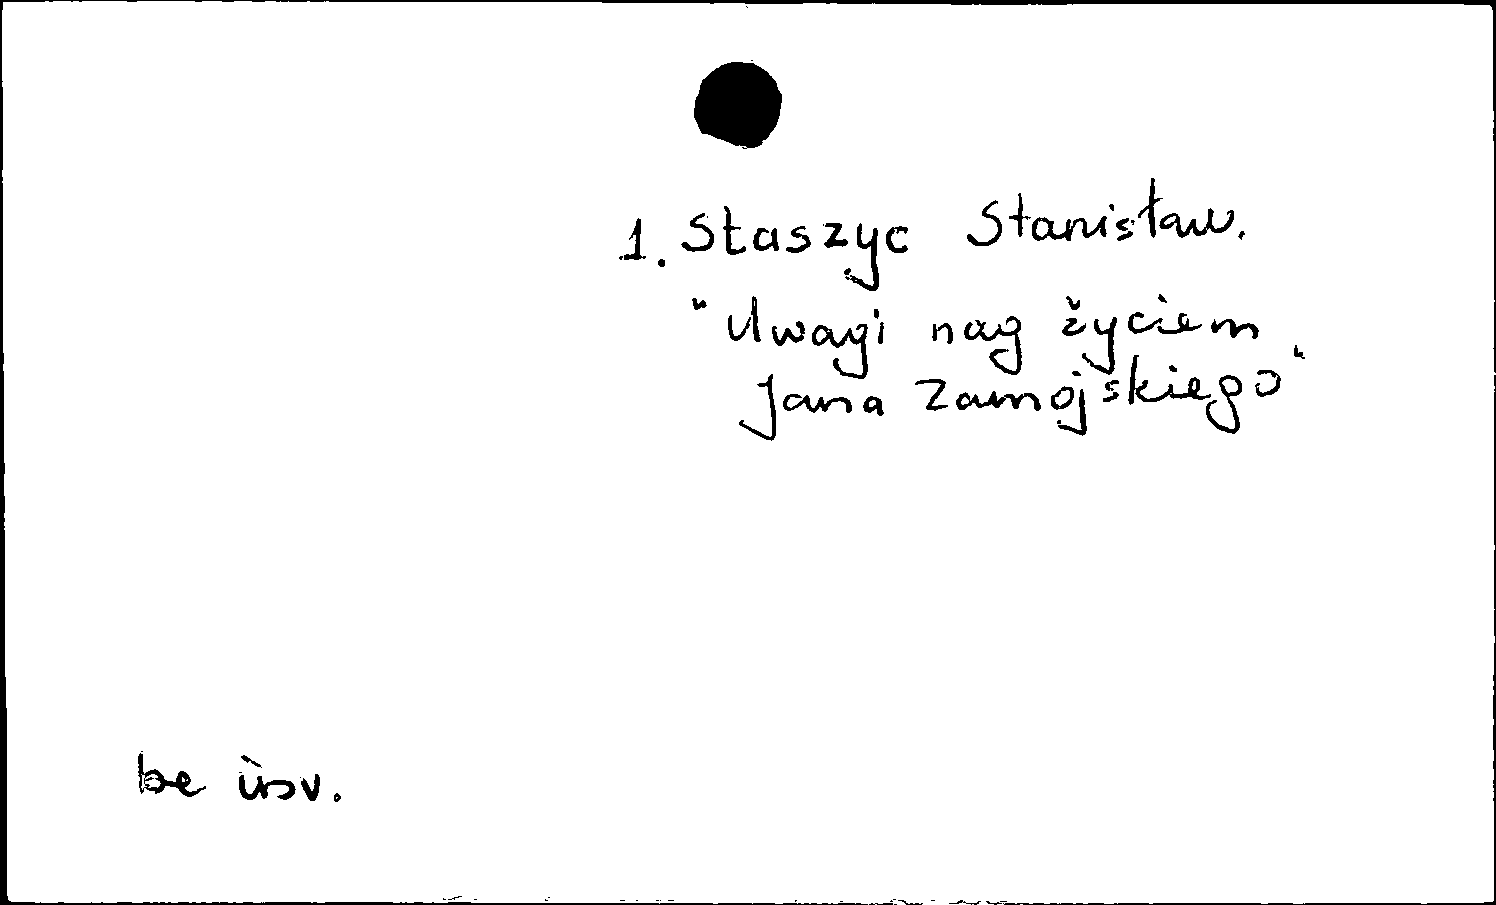 1. Staszyc Stanisław.
"Uwagi nag życiem
Jana Zamojskiego"
be inv.